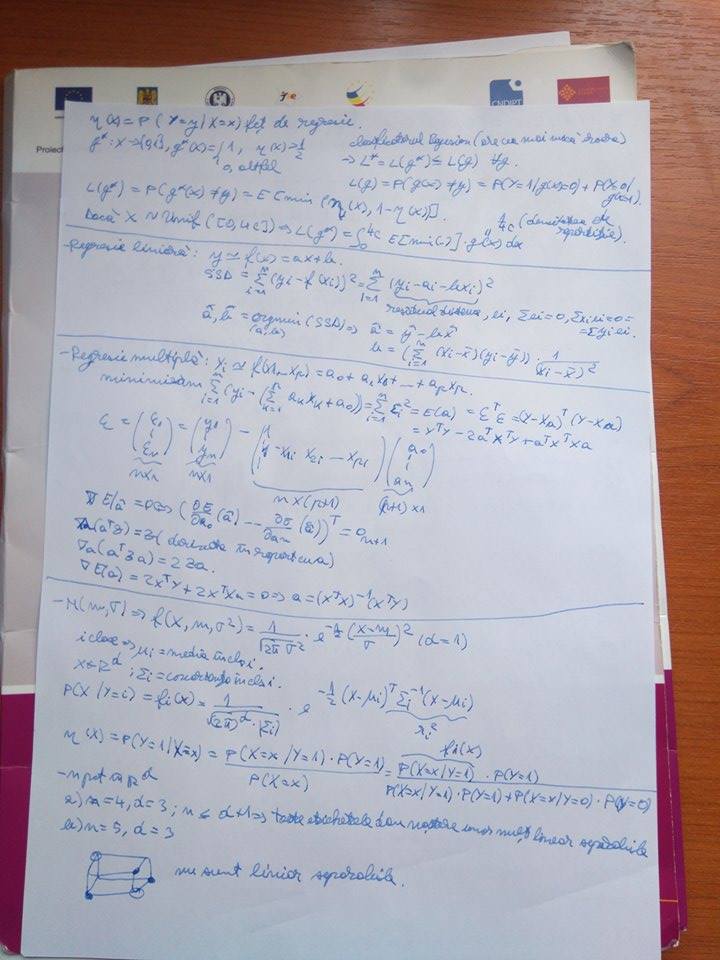 Proiec
CNDIPT
η(x) = P(Y=y/X=x) fct de regresie.
g*: X→{0,1}, g*(x) = {1, η(x)>1/2
0, altfel
clasificatorul Bayesian (are cea mai mică eroare)
⇒ L* = L(g*) ≤ L(g) ∀g.
L(g) = P(g(x)≠y) = P(Y=1/g(x)=0) + P(Y=0/g(x)=1).
L(g*) = P(g*(x)≠y) = E[min(η(x), 1-η(x))].
Dacă X ~ Unif([0,4c]) ⇒ L(g*) = ∫₀^4c E[min()] · g(x) dx
1/4c (densitatea de repartiție)
- Regresie liniară: y ≃ f(x) = ax+b.
SSD = Σ_{i=1}^n (yi - f(xi))² = Σ_{i=1}^n (yi - ai - bxi)²
ei, Σei=0, Σxiei=0=
=Σyiei.
ā, b̄ = argmin(SSD) ⇒ ā = ȳ - bx̄
(a,b)
b = (Σ_{i=1}^n (xi-x̄)(yi-ȳ)) · 1/(xi-x̄)²
- Regresie multiplă: yi ≃ f(x1...xp) = a0 + a1x1 + ... + apxp.
minimizam Σ_{i=1}^n (yi - (Σ_{k=1}^p akxk + a0)) = Σ_{i=1}^n εi² = E(a) = ε^T ε = (Y-Xa)^T (Y-Xa)
= Y^T Y - 2a^T X^T Y + a^T X^T Xa
ε = (ε1 ⋮ εn) = (y1 ⋮ yn) - (1 ⋮ 1 x1i x2i ... xpi) (a0 ⋮ an)
n×1 n×1 n×(p+1) (p+1)×1
∇E(ā) = 0 ⇔ (∂E/∂a0 (ā) ... ∂E/∂an (ā))^T = 0_{n+1}
∇a(a^T z) = z (derivata în raport cu a)
∇a(a^T z a) = 2za.
∇E(a) = 2X^T Y + 2X^T Xa = 0 ⇒ a = (X^T X)^-1 (X^T Y)
- N(m,σ) ⇒ f(x,m,σ²) = 1/√(2π σ²) · e^{-1/2 ((x-m)/σ)²} (d=1)
i clase ⇒ μi = media în clasa i.
x∈R^d ; Σi = covarianța în clasa i.
P(X/Y=i) = fi(x) = 1/(√(2π)^d · |Σi|) · e^{-1/2 (x-μi)^T Σi^-1 (x-μi)}
ri²
η(x) = P(Y=1/X=x) = P(X=x/Y=1) · P(Y=1) / P(X=x) = P(X=x/Y=1) · P(Y=1) / P(X=x/Y=1) · P(Y=1) + P(X=x/Y=0) · P(Y=0)
fi(x)
- n pct în R^d
a) n=4, d=3; n ≤ d+1 ⇒ toate etichetele dau naștere unor mulț liniar separabile
b) n=5, d=3
nu sunt liniar separabile.